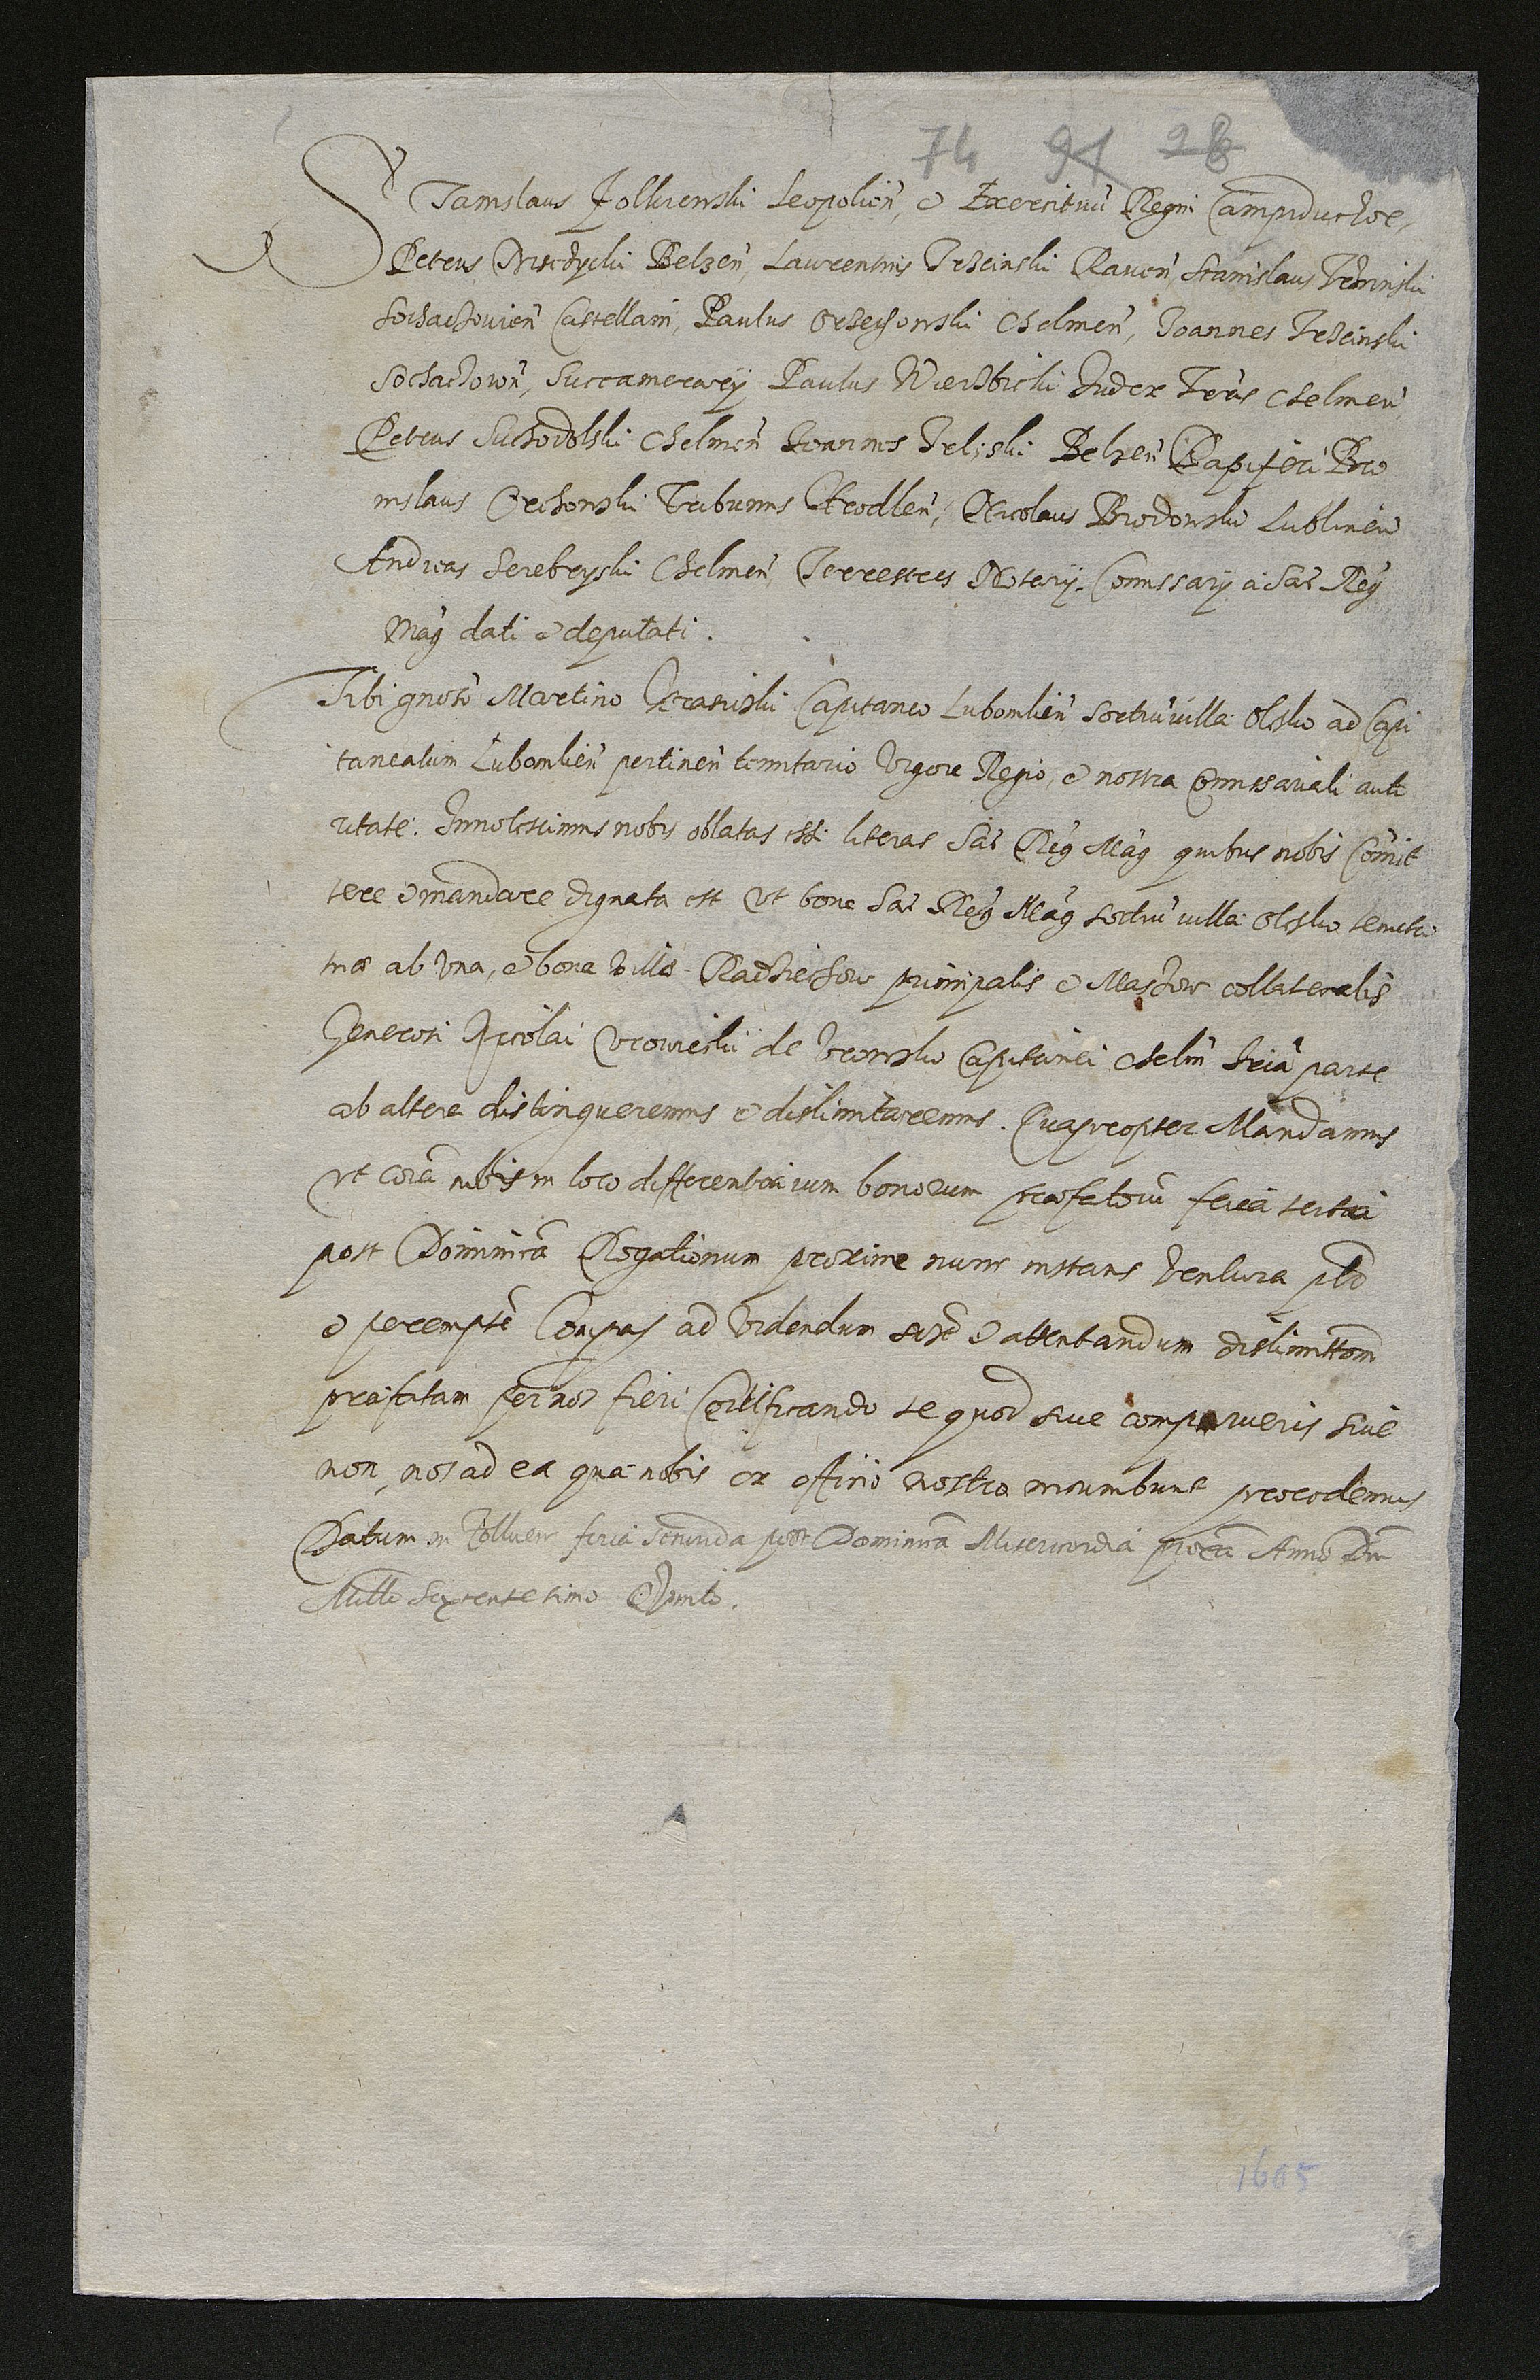 74 91 28
Stanislaus Zolkiewski Leopolien̄, et Exercituū Regni Campiductor,
Petrus Belzen̄, Laurentius Trzcinski Raven̄, Stanislaus
Sochachovien̄ Castellani, Paulus Orzechowski Chelmen̄, Joannes Trzcinski
Sochachovn̄, Succamerarij Paulus Wierzbicki Judex Terrӕ Chelmen̄
Petrus Suchodolski Chelmen̄ Joannes Belzen̄ Dapiferi Bro
nislaus Orchowski Tribunus Crodlen̄, Nicolaus Brodowski Lublinen̄
Andreas Serebryski Chelmen̄, Terrestres Notarij. Commissarij à Sac̄ Reḡ
Maj̄ dati et deputati.
Tibi gnoso Martino Krasicki Capitaneo Lubomlien̄ villӕ Olesko ad Capi
taneatum Lubomlien̄ pertinen̄ tenutario vigore Regio, et nostra Commissariali auto
ritate. Innotescimus nobis oblatas esse literas Sac̄ Reḡ Maj̄ quibus nobis Com̄it
tere et mandare dignata est vt bona Sac̄ Reḡ Maj̄ villӕ Olesko tenutӕ
tuӕ ab vna, et bona villӕ Radziechow principalis et Maschow collateralis
Generosi Nicolai Vrowieski de Vrowsko Capitanei Chelm̄ parte
ab altera distingueremus et dislimitaremus. Quapropter Mandamus
vt corā nobis in loco differentiarum bonorum prӕfatorū feria tertia
post Dominicā Rogationum proxime nunc instans ventura
et perempte Compas ad videndum et attentandum dislimittom̄
prӕfatam per nos fieri Certificando te quod siue comparueris siue
non, nos ad ea quӕ nobis ex officio nostro incumbunt procedemus
Datum in Zolkiew feria secunda post Dominicā Misericordiӕ Anno Dni
Millo Sexcentesimo Quinto.
1605